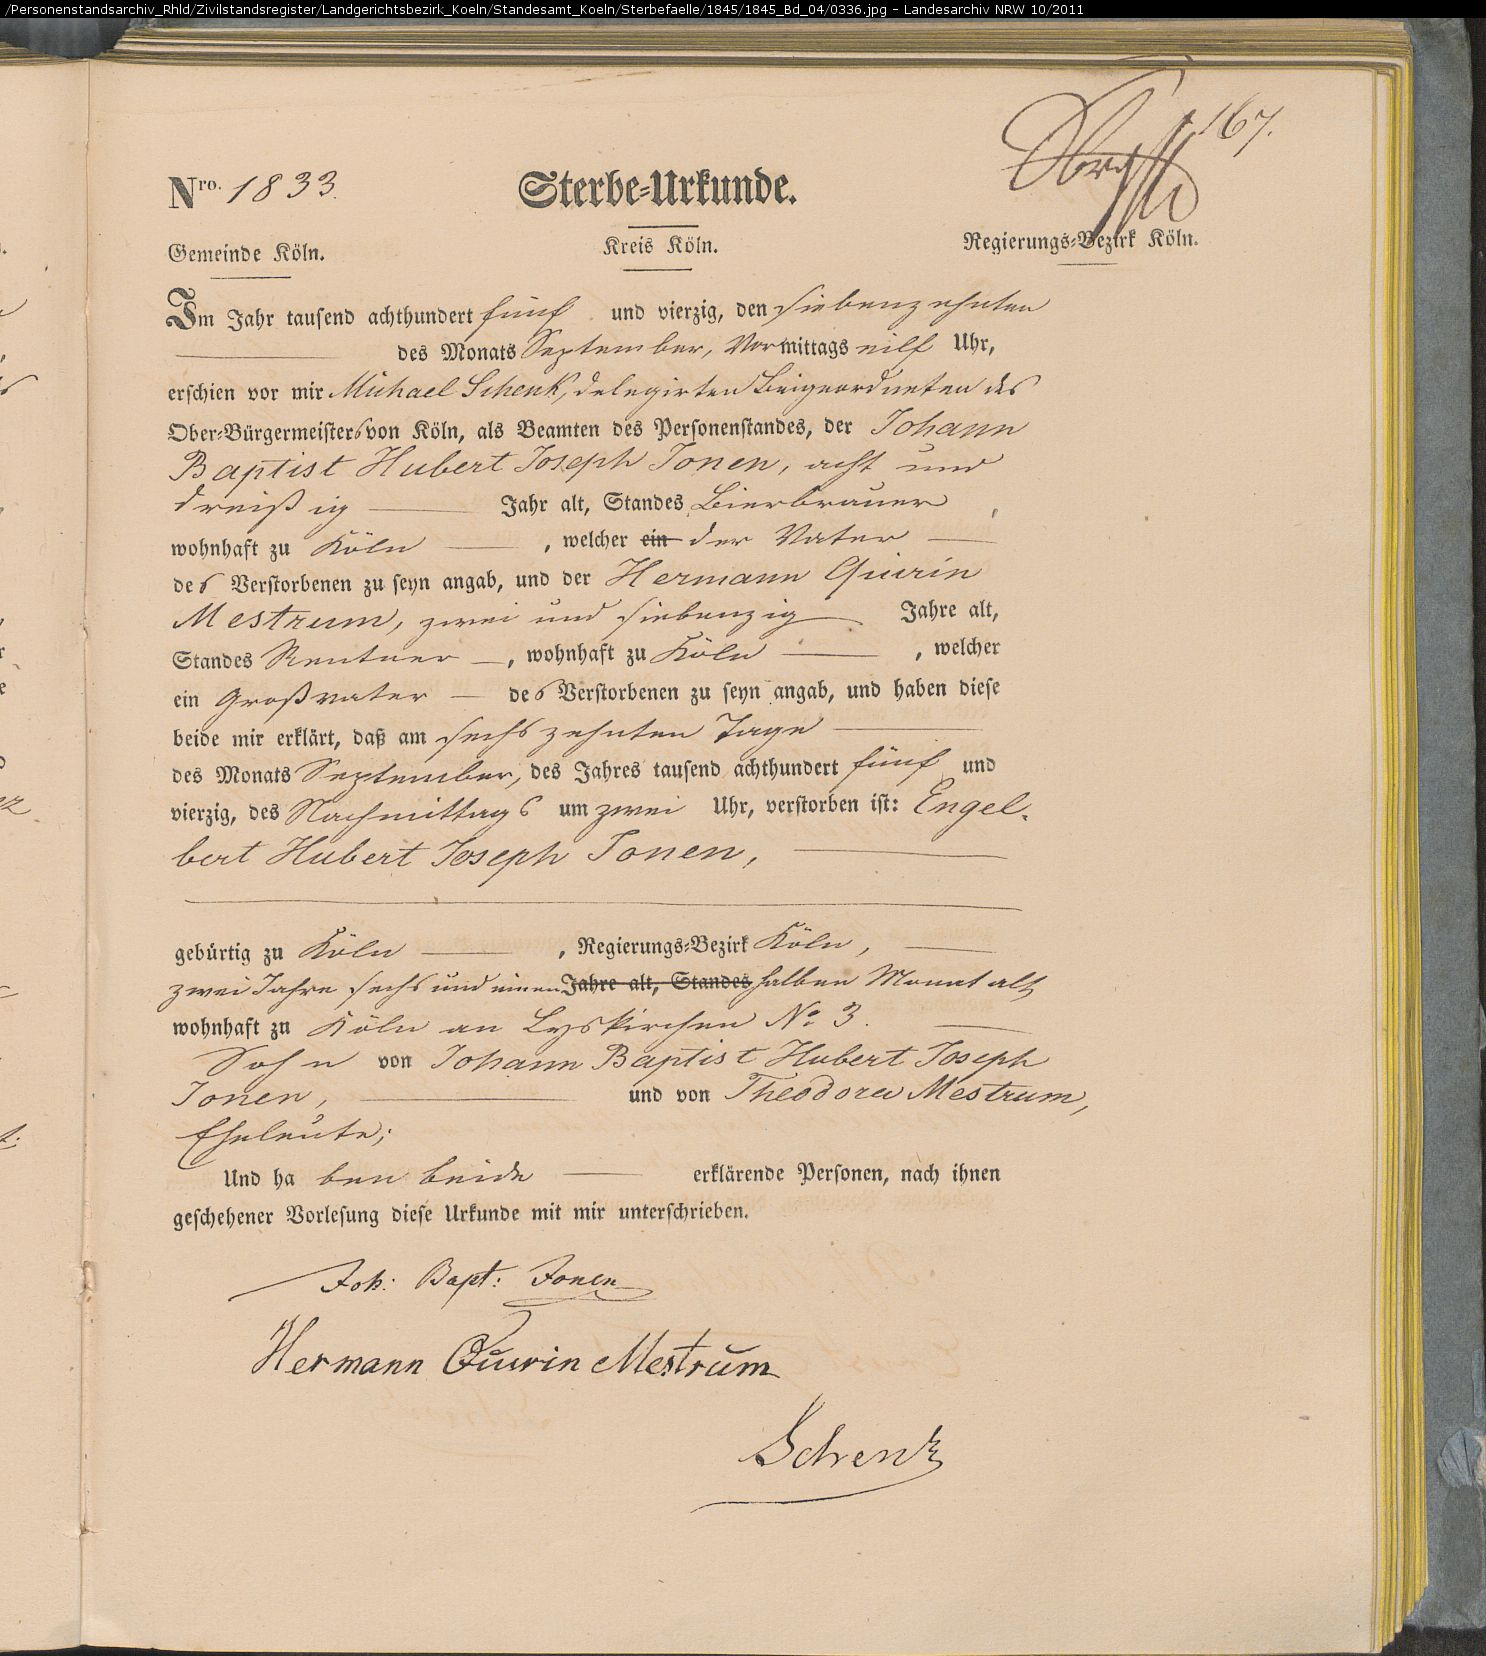 /Personenstandsarchiv_Rhld/Zivilstandsregister/Landgerichtsbezirk_Koeln/Standesamt_Koeln/Sterbefaelle/1845/1845_Bd_04/0336.jpg - Landesarchiv NRW 10/2011
167.
Nro. 1833. Sterbe-Urkunde.
Gemeinde Köln. Kreis Köln. Regierungs-Bezirk Köln.
Im Jahr tausend achthundert fünf und vierzig, den siebenzehnten
des Monats September, Vormittags eilf Uhr,
erschien vor mir Michael Schenk, delegirten Beigeordneten des
Ober-Bürgermeisters von Köln, als Beamten des Personenstandes, der Johann
Baptist Hubert Joseph Jonen, acht und
dreißig Jahr alt, Standes Bierbrauer,
wohnhaft zu Köln, welcher ein der Vater
des Verstorbenen zu seyn angab, und der Hermann Quirin
Mestrum, zwei und siebenzig Jahre alt,
Standes Rentner, wohnhaft zu Köln, welcher
ein Großvater des Verstorbenen zu seyn angab, und haben diese
beide mir erklärt, daß am sechszehnten Tage
des Monats September, des Jahres tausend achthundert fünf und
vierzig, des Nachmittags um zwei Uhr, verstorben ist: Engel-
bert Hubert Joseph Jonen,
gebürtig zu Köln, Regierungs-Bezirk Köln,
zwei Jahre sechs und einen Jahre alt, Standes halben Monat alt
wohnhaft zu Köln an Lyskirchen No. 3.
Sohn von Johann Baptist Hubert Joseph
Jonen, und von Theodora Mestrum,
Eheleute;
Und haben beide erklärende Personen, nach ihnen
geschehener Vorlesung diese Urkunde mit mir unterschrieben.
Joh: Bapt: Jonen
Hermann Quirin Mestrum
Schenk